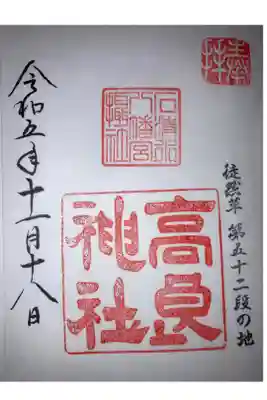 奉拝
徒然草 第五十二段の地
石清水
八幡宮
攝社
高良
神社
令和五年十一月十八日